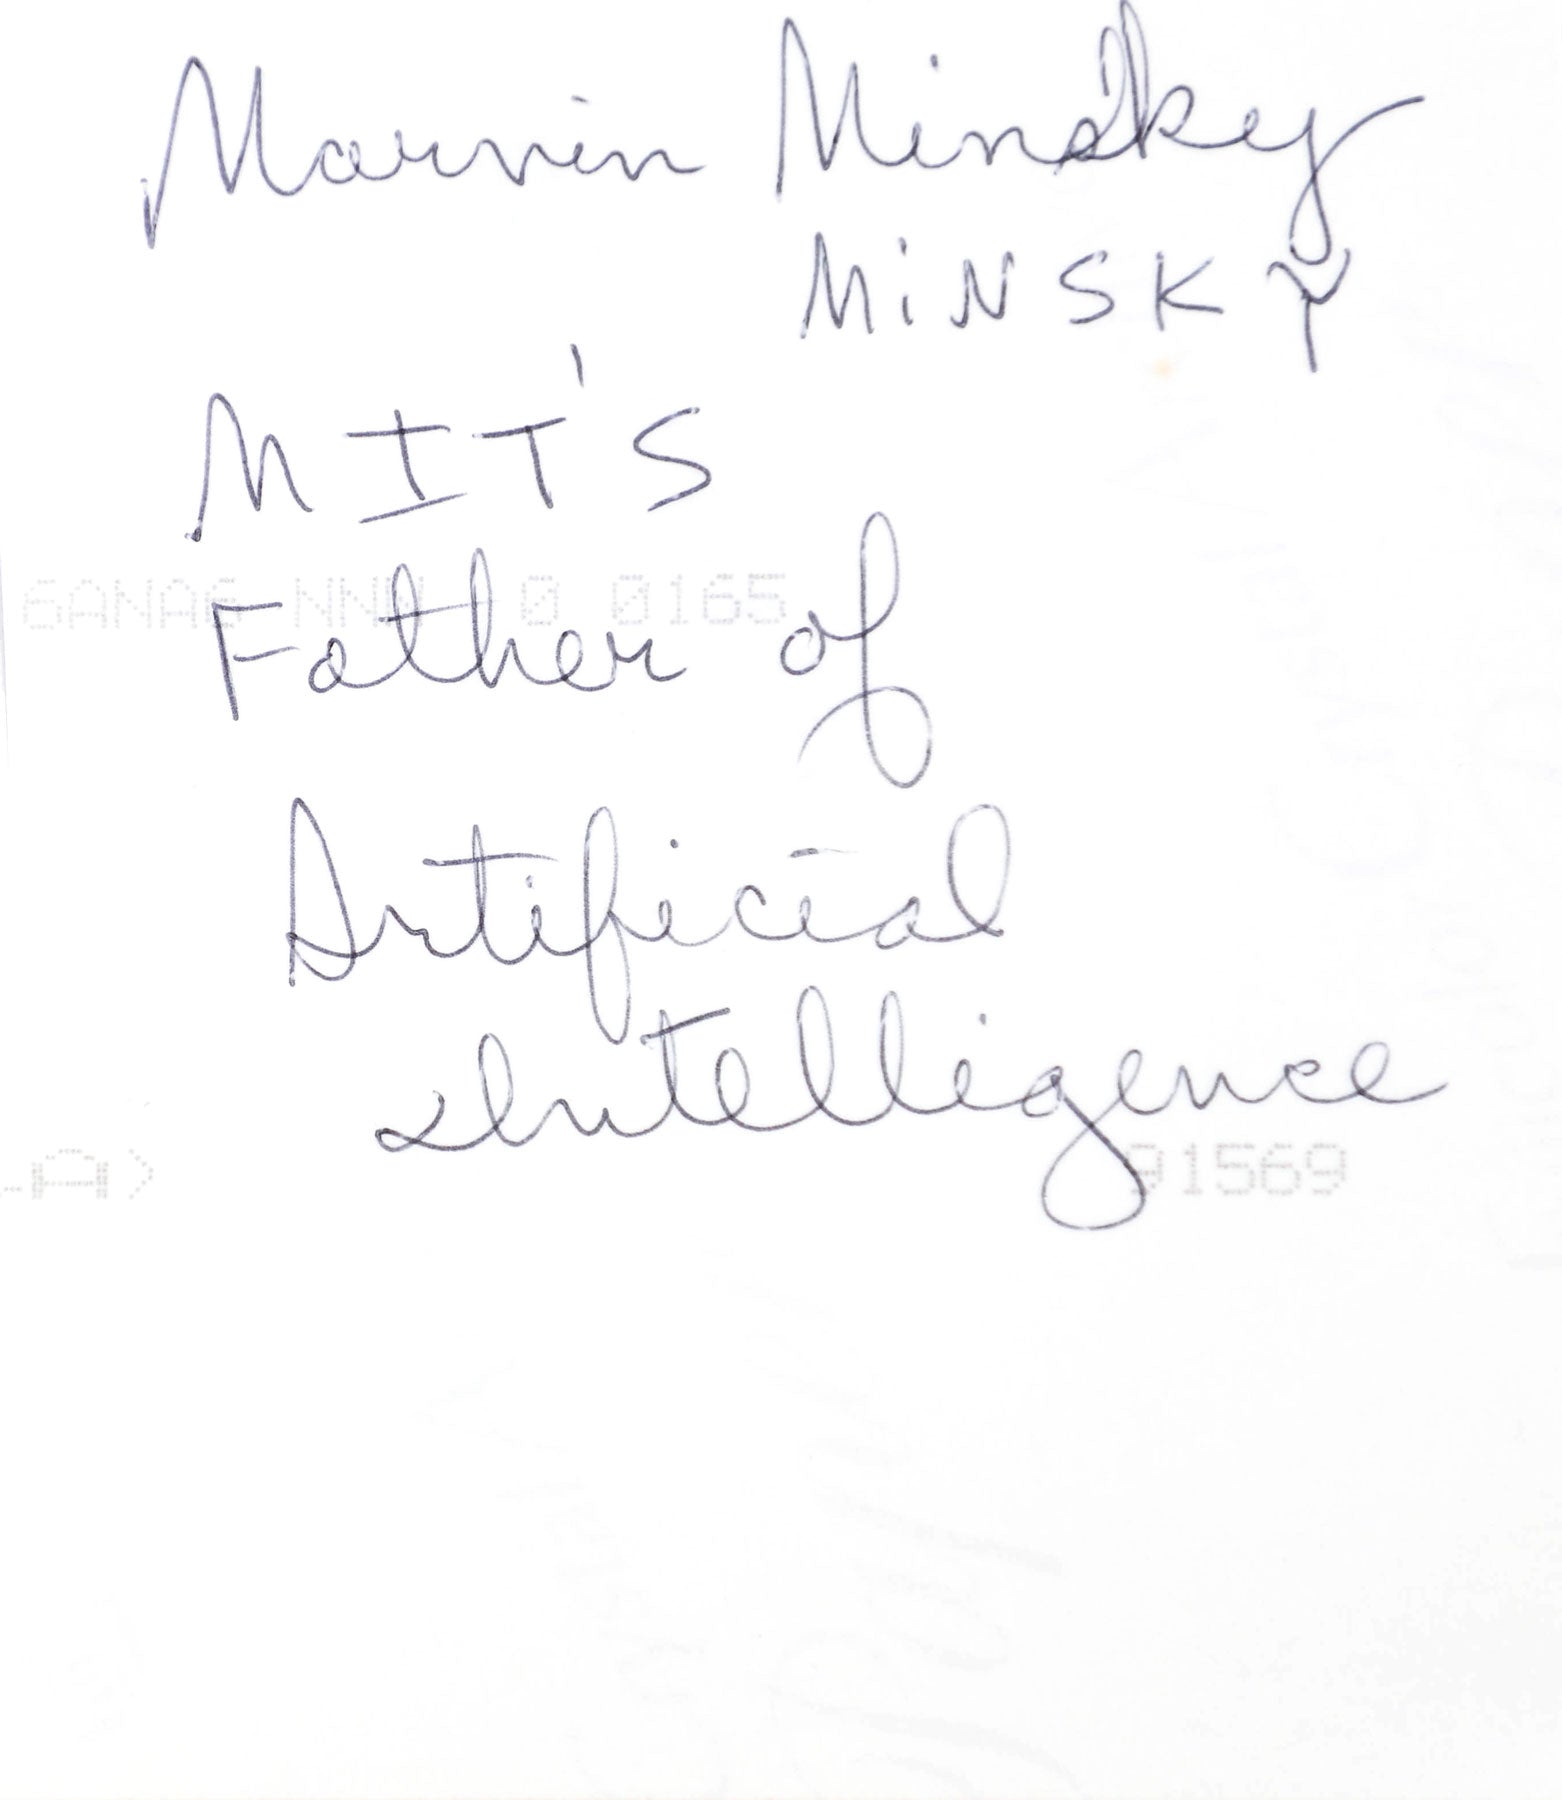 Marvin Minsky
MiNSKY
MIT'S
Father of
6ANA6 NNN 0 0165
Artificial
Intelligence
91569